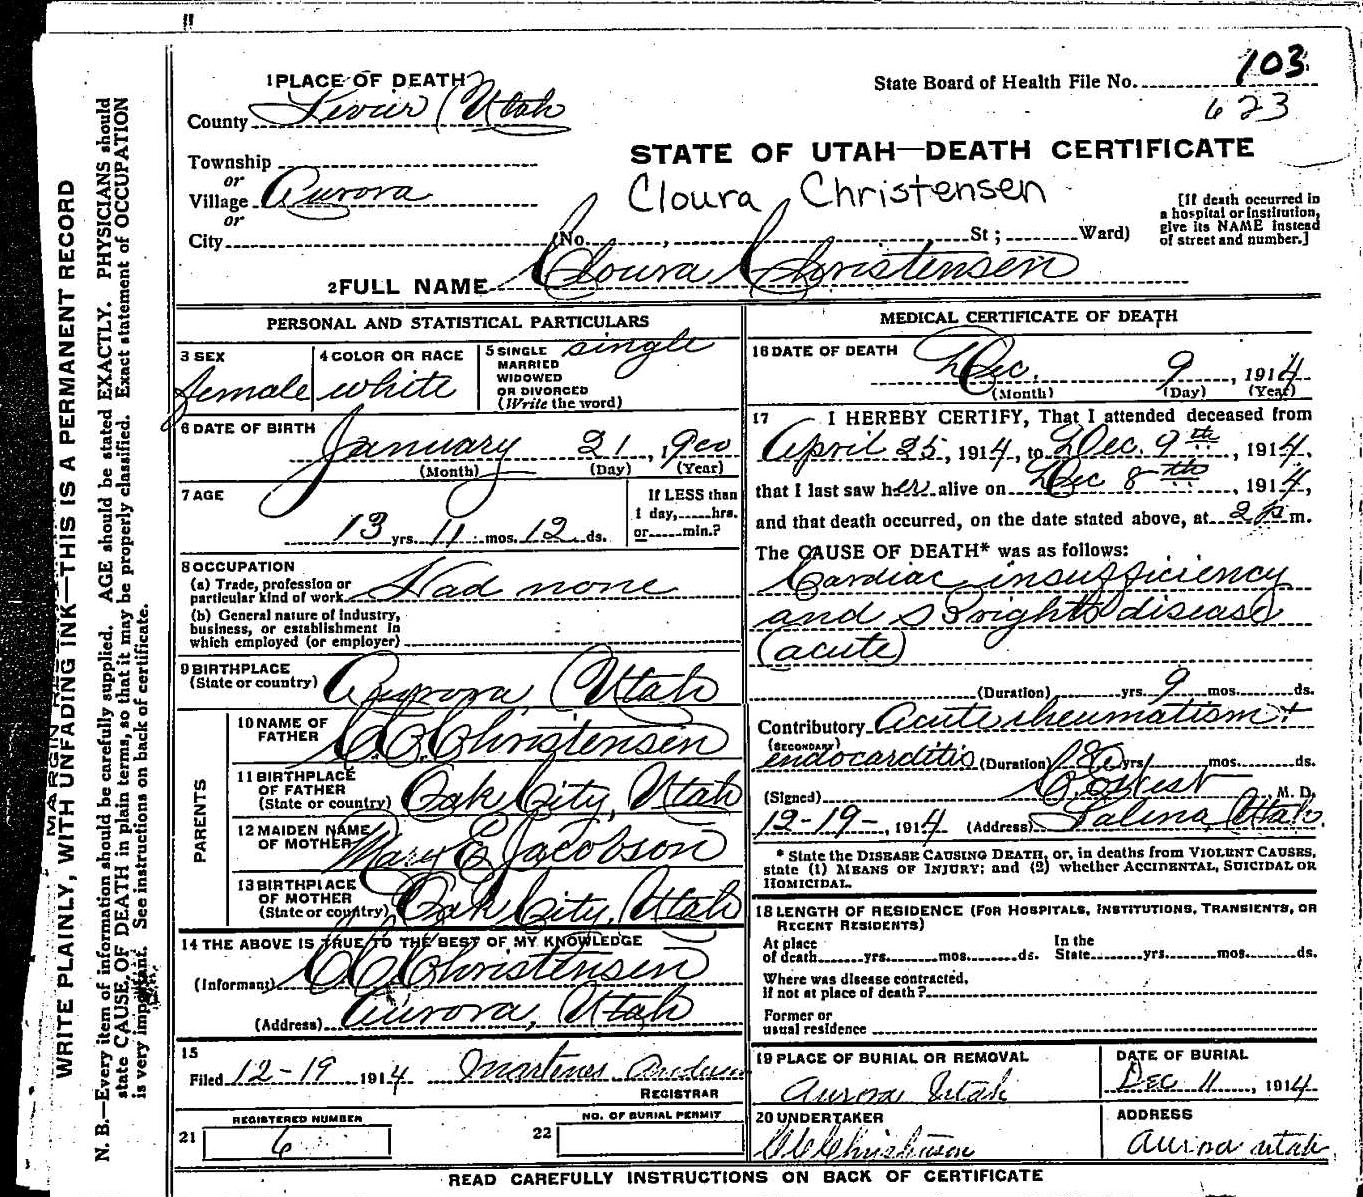 1 PLACE OF DEATH
State Board of Health File No. 103
623
County Sevier Utah
Township
or
Village Aurora
or
City (No. , St ; Ward)
STATE OF UTAH—DEATH CERTIFICATE
Cloura Christensen
[If death occurred in
a hospital or institution,
give its NAME instead
of street and number.]
2 FULL NAME Cloura Christensen
PERSONAL AND STATISTICAL PARTICULARS
3 SEX
female
4 COLOR OR RACE
white
5 SINGLE single
MARRIED
WIDOWED
OR DIVORCED
(Write the word)
6 DATE OF BIRTH
January 21, 1900
(Month) (Day) (Year)
7 AGE
13 yrs. 11 mos. 12 ds.
If LESS than
1 day, hrs.
or min.?
8 OCCUPATION
(a) Trade, profession or
particular kind of work Had none
(b) General nature of industry,
business, or establishment in
which employed (or employer)
9 BIRTHPLACE
(State or country) Aurora, Utah
PARENTS
10 NAME OF
FATHER C.C. Christensen
11 BIRTHPLACE
OF FATHER
(State or country) Oak City, Utah
12 MAIDEN NAME
OF MOTHER Mary E Jacobson
13 BIRTHPLACE
OF MOTHER
(State or country) Oak City, Utah
14 THE ABOVE IS TRUE TO THE BEST OF MY KNOWLEDGE
(Informant) CC Christensen
(Address) Aurora, Utah
15
Filed 12-19 1914
REGISTRAR
REGISTERED NUMBER
21 6
NO. OF BURIAL PERMIT
22
MEDICAL CERTIFICATE OF DEATH
16 DATE OF DEATH
Dec. 9, 1914
(Month) (Day) (Year)
17 I HEREBY CERTIFY, That I attended deceased from
April 25, 1914, to Dec. 9th, 1914,
that I last saw her alive on Dec 8th, 1914,
and that death occurred, on the date stated above, at 2 p m.
The CAUSE OF DEATH* was as follows:
Cardiac insufficiency
and Bright's disease
(acute)
(Duration) yrs. 9 mos. ds.
Contributory Acute rheumatism +
(SECONDARY)
endocarditis (Duration) yrs. mos. ds.
(Signed) West M. D.
12-19-, 1914 (Address) Salina, Utah.
* State the DISEASE CAUSING DEATH, or, in deaths from VIOLENT CAUSES,
state (1) MEANS OF INJURY; and (2) whether ACCIDENTAL, SUICIDAL OR
HOMICIDAL.
18 LENGTH OF RESIDENCE (FOR HOSPITALS, INSTITUTIONS, TRANSIENTS, OR
RECENT RESIDENTS)
At place
of death yrs. mos. ds.
In the
State yrs. mos. ds.
Where was disease contracted,
if not at place of death?
Former or
usual residence
19 PLACE OF BURIAL OR REMOVAL
Aurora Utah
DATE OF BURIAL
Dec 11, 1914
20 UNDERTAKER
CC Christensen
ADDRESS
Aurora Utah
READ CAREFULLY INSTRUCTIONS ON BACK OF CERTIFICATE
WRITE PLAINLY, WITH UNFADING INK—THIS IS A PERMANENT RECORD
N. B.—Every item of information should be carefully supplied. AGE should be stated EXACTLY. PHYSICIANS should
state CAUSE OF DEATH in plain terms, so that it may be properly classified. Exact statement of OCCUPATION
is very important. See instructions on back of certificate.